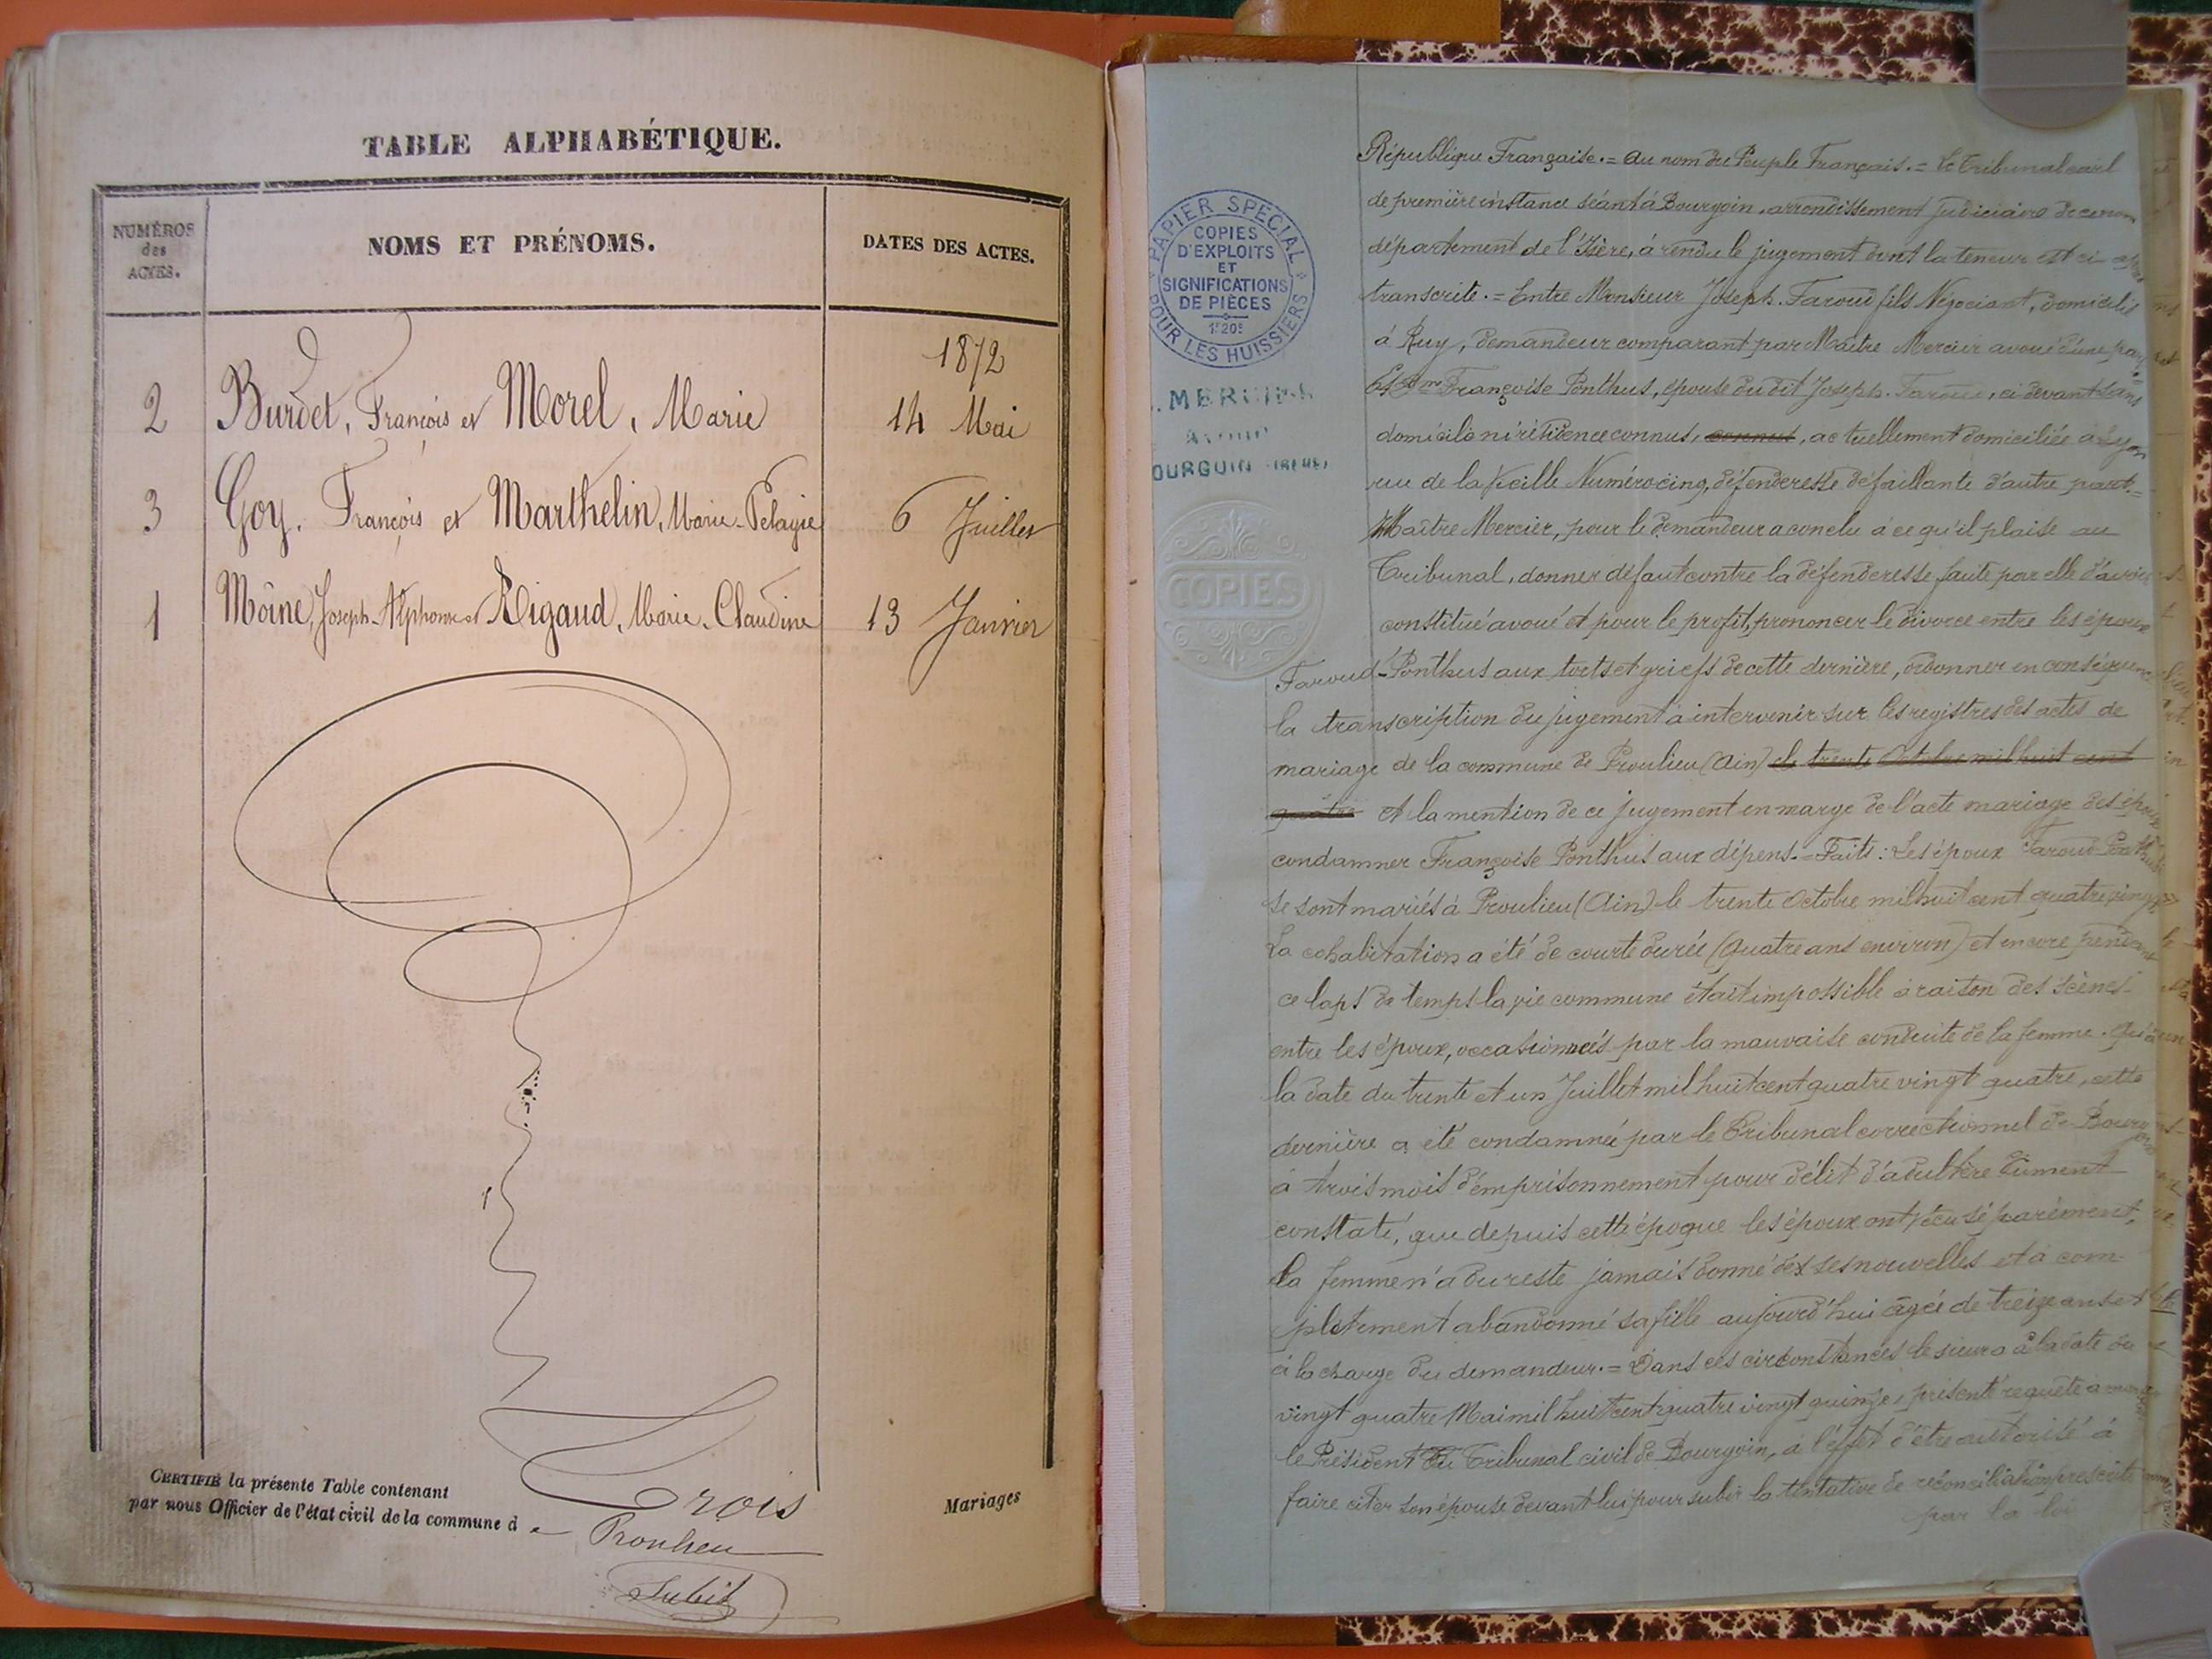 TABLE ALPHABÉTIQUE.
NUMÉROS
des
ACTES.
NOMS ET PRÉNOMS.
DATES DES ACTES.
1872
2 Burdet, François et Morel, Marie 14 Mai
3 Goy, François et Marthelin, Marie-Pelagie 6 Juillet
1 Moine, Joseph-Alphonse et Rigaud, Marie-Claudine 13 Janvier
CERTIFIÉ la présente Table contenant Trois Mariages
par nous Officier de l'état civil de la commune d e Proulieu
Subit
PAPIER SPECIAL
COPIES
D'EXPLOITS
ET
SIGNIFICATIONS
DE PIÈCES
1f20c
POUR LES HUISSIERS
. MERCIER
AVOUÉ
OURGOIN (ISÈRE)
COPIES
République Française. = au nom du Peuple Français. = Le Tribunal civil
de première instance séant à Bourgoin, arrondissement judiciaire de ce nom
département de l'Isère, à rendu le jugement dont la teneur est ci après
transcrite. = Entre Monsieur Joseph Faroud fils Négociant, domicilié
à Ruy, demandeur comparant par Maître Mercier avoué d'une part
Et Dme Françoise Ponthus, épouse du dit Joseph Faroud, ci devant sans
domicile ni résidence connus, connus, actuellement domiciliée à Lyon
rue de la Vieille Numéro cinq, défenderesse défaillante d'autre part. =
Maître Mercier, pour le demandeur a conclu à ce qu'il plaise au
Tribunal, donner défaut contre la défenderesse faute par elle d'avoir
constitué avoué et pour le profit, prononcer le divorce entre les époux
Faroud-Ponthus aux torts et griefs de cette dernière, ordonner en conséquence
la transcription du jugement à intervenir sur les registres des actes de
mariage de la commune de Proulieu (Ain) le trente Octobre mil huit cent
quatre et la mention de ce jugement en marge de l'acte mariage des époux
condamner Françoise Ponthus aux dépens. = Faits : Les époux Faroud-Ponthus
se sont mariés à Proulieu (Ain) le trente Octobre mil huit cent quatre vingt
La cohabitation a été de courte durée (quatre ans environ) et encore pendant
ce laps de temps la vie commune était impossible à raison des scènes
entre les époux, occasionnées par la mauvaise conduite de la femme. Qu'à
la date du trente et un Juillet mil huit cent quatre vingt quatre, cette
dernière a été condamnée par le Tribunal correctionnel de Bourgoin
à trois mois d'emprisonnement pour délit d'adultère dûment
constaté, que depuis cette époque les époux ont vécu séparément,
la femme n'a du reste jamais donné de ses nouvelles et à com-
plètement abandonné sa fille aujourd'hui âgée de treize ans et
à la charge du demandeur. = Dans ces circonstances le sieur a à la date du
vingt quatre Mai mil huit cent quatre vingt quinze, présenté requête a
le Président du Tribunal civil de Bourgoin, à l'effet d'être autorisé à
faire citer son épouse devant lui pour subir la tentative de réconciliation prescrite
par la loi